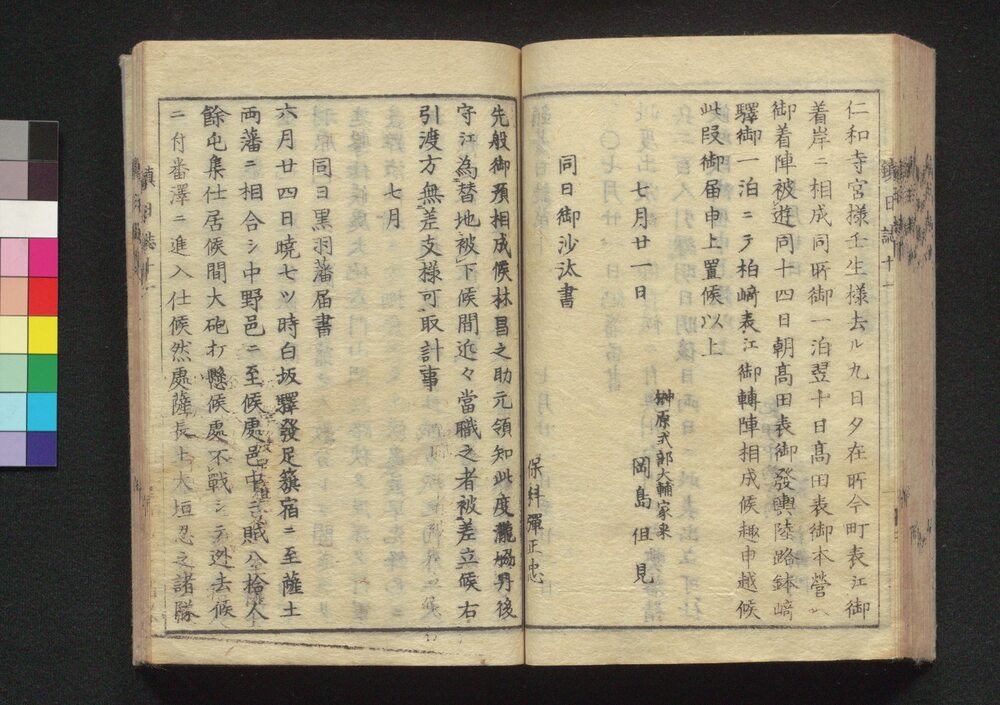 仁和寺宮様壬生様去ル九日夕在所今町表江御
着岸ニ相成同所御一泊翌十日髙田表御本営ハ
御着陣被遊同十四日朝髙田表御發輿陸路鉢﨑
驛御一泊ニテ柏﨑表江御轉陣相成候趣申越候
此段御届申上置候以上
七月廿一日
榊原式部大輔家来
岡島但見
同日御沙汰書
保科彈正忠
先般御預相成候林昌之助元領知此度瀧脇丹後
守江為替地被下候間近々當職之者被差立候右
引渡方無差支様可取計事
七月
同日黒羽藩届書
六月廿四日暁七ツ時白坂驛發足籏宿ニ至薩土
両藩ニ相合シ中野邑ニ至候處邑中ニ賊八拾人
餘屯集仕居候間大砲打懸候處不戰シテ迯去候
ニ付番澤ニ進入仕候然處薩長土大垣忍之諸隊
鎮日誌十一